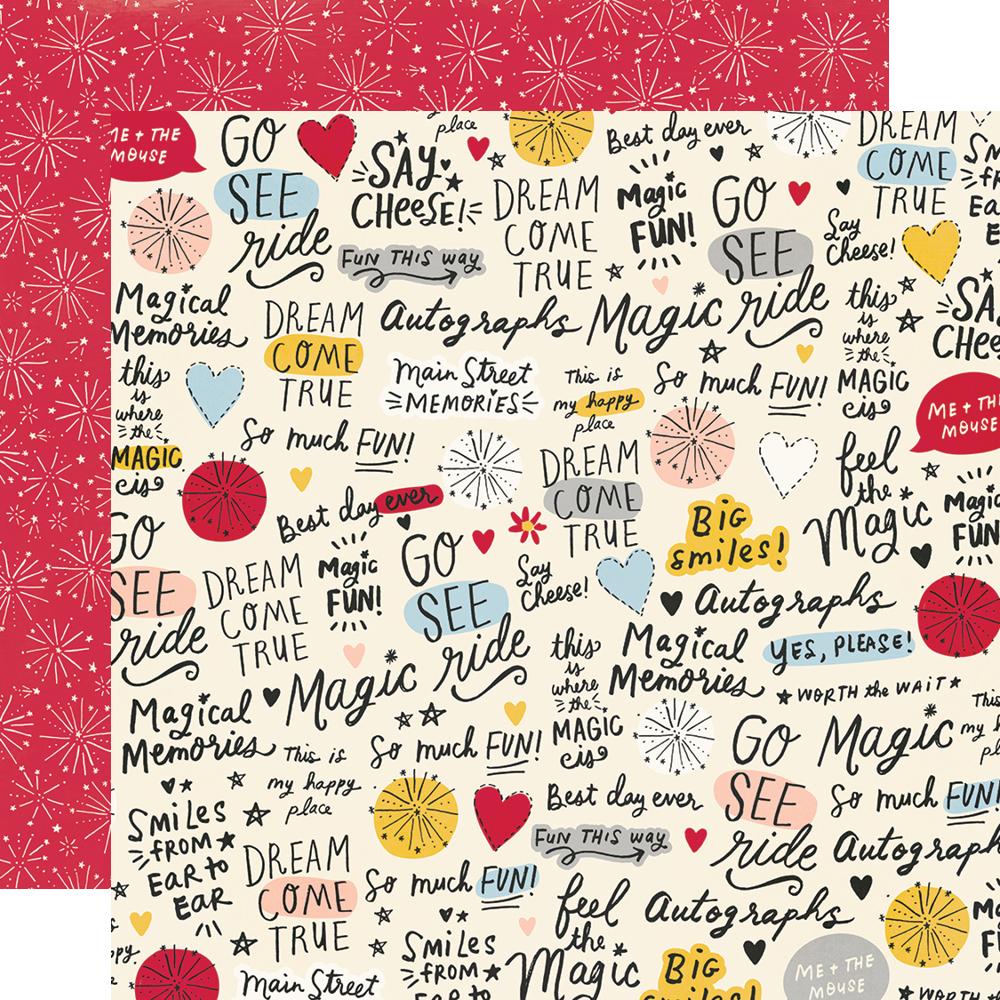 ME + THE
MOUSE
GO
SEE
ride
SAY
CHEESE!
place
Best day ever
DREAM
COME
TRUE
DREAM
COME
TRUE
Magic
FUN!
GO
SEE
ride
Say
Cheese!
FUN THIS way
Magical
Memories
DREAM
COME
TRUE
Autographs
Magic
this
is
where
the
MAGIC
is
SAY
CHEESE
this
is
where
the
MAGIC
is
Main Street
MEMORIES
This is
my happy
place
So much FUN!
ME + THE
MOUSE
So much FUN!
Best day ever
DREAM
COME
TRUE
feel
the
Magic
Magic
FUN
Big
smiles!
GO
SEE
ride
DREAM
COME
TRUE
Magic
FUN!
GO
SEE
ride
Say
Cheese!
Autographs
this
is
where
the
MAGIC
is
Magical
Memories
YES, PLEASE!
WORTH the WAIT
Magical
Memories
Magic
This is
my happy
place
So much FUN!
GO
SEE
ride
Magic
This
my h
pl
Smiles
FROM
EAR to
EAR
Best day ever
So much FUN!
FUN THIS way
Autograph
DREAM
COME
TRUE
So much FUN!
feel
the
Magic
Autographs
Smiles
FROM
Big
smiles!
ME + THE
MOUSE
Main Street
WORTH the W